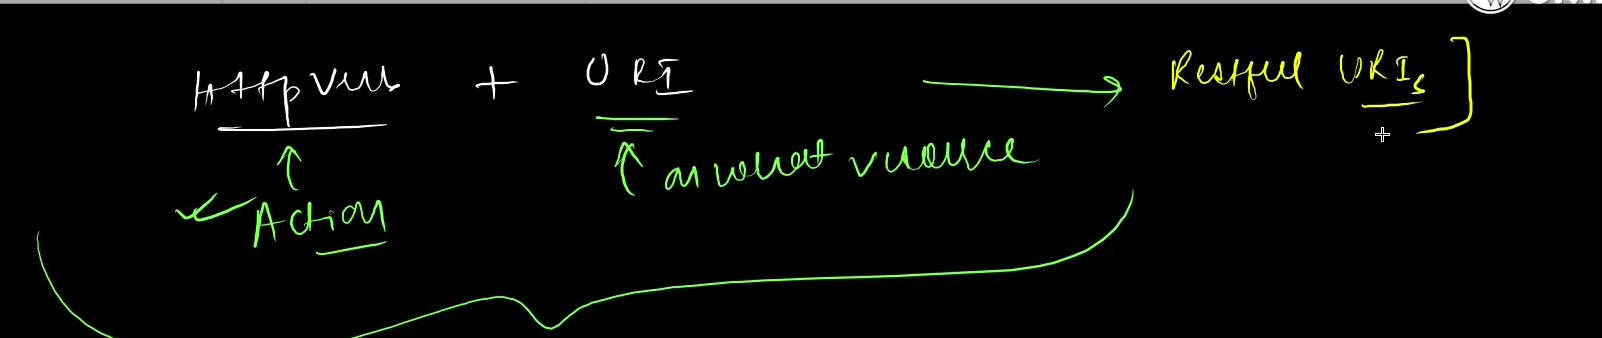 Http Verb + URI → Restful URIs ]
↑ Action ↑ on what resource